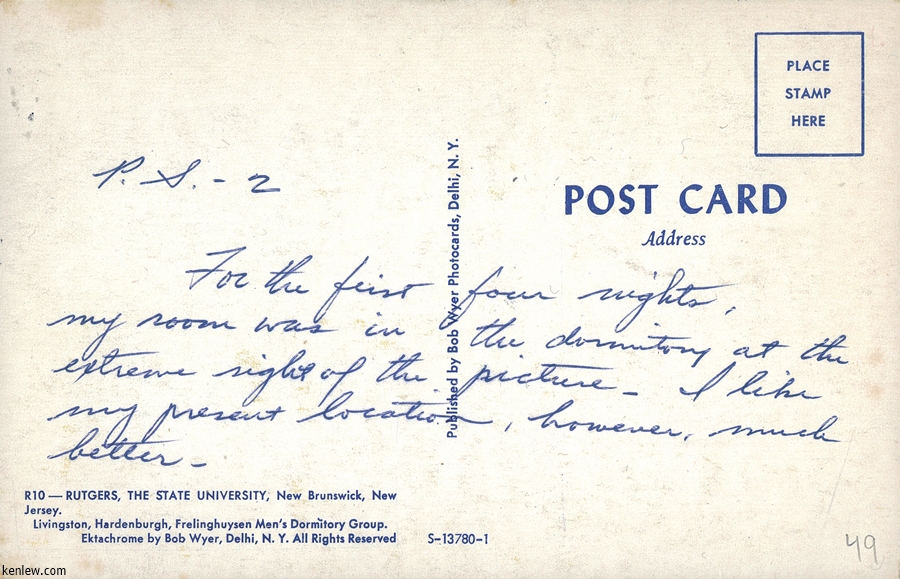 PLACE
STAMP
HERE
P. S. - 2
POST CARD
Address
For the first four nights,
my room was in the dormitory at the
extreme right of the picture - I like
my present location, however, much
better -
Published by Bob Wyer Photocards, Delhi, N. Y.
R10 — RUTGERS, THE STATE UNIVERSITY, New Brunswick, New
Jersey.
Livingston, Hardenburgh, Frelinghuysen Men's Dormitory Group.
Ektachrome by Bob Wyer, Delhi, N. Y. All Rights Reserved
S-13780-1
49
kenlew.com